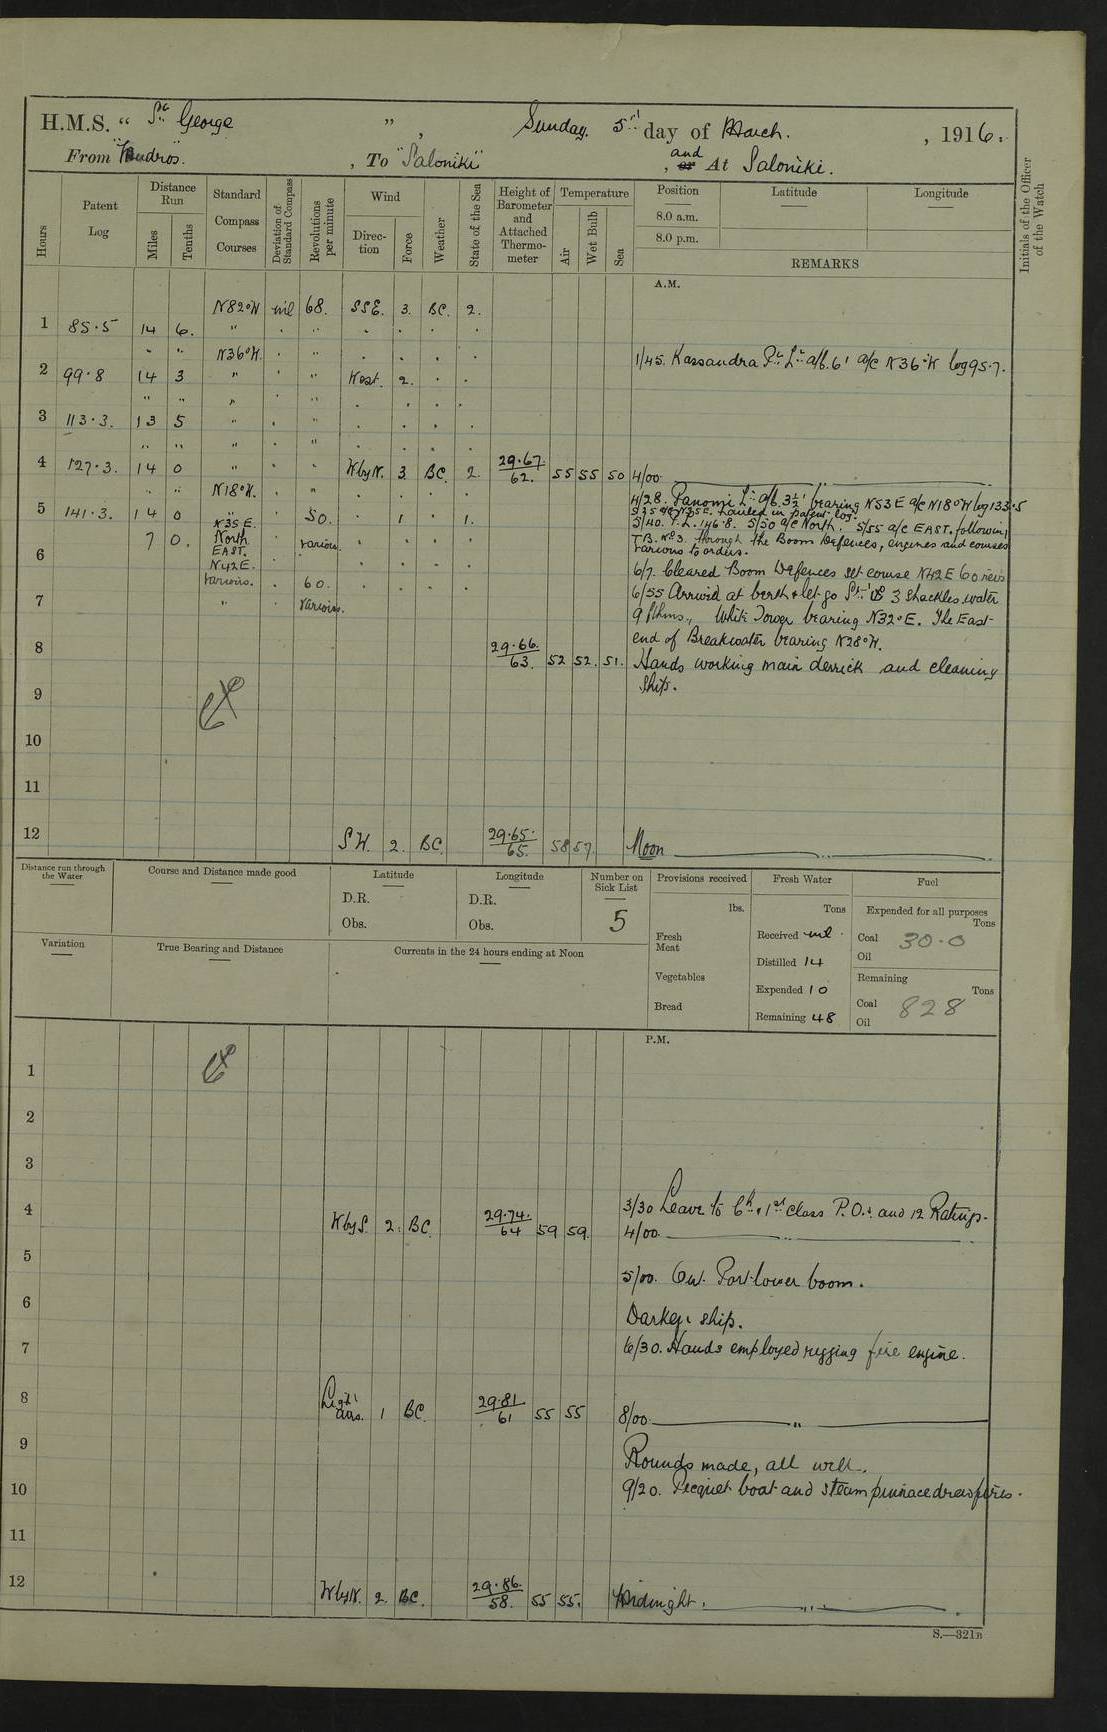 H.M.S. " St George " , Sunday. 5th day of March. , 1916.
From "Mudros". , To "Saloniki" , and or At Saloniki.
Hours
Patent Log
Distance Run
Miles
Tenths
Standard Compass Courses
Deviation of Standard Compass
Revolutions per minute
Wind
Direction
Force
Weather
State of the Sea
Height of Barometer and Attached Thermometer
Temperature
Air
Wet Bulb
Sea
Position Latitude Longitude
8.0 a.m.
8.0 p.m.
REMARKS
Initials of the Officer of the Watch
A.M.
N82°W nil 68. SSE. 3. BC. 2.
1 85.5 14 6. "
" " N36°W. "
1/45. Kassandra Pt Lt a/b. 6' a/c N36°W log 95.7.
2 99.8 14 3 " " West. 2.
" " " "
3 113.3. 13 5 "
" " " "
4 127.3. 14 0 " WbyN. 3 BC. 2. 29.67 62. 55 55 50 4/00
" " N18°W. "
4/28. Panomi Lt a/b. 3½' bearing N53E a/c N18°W log 133.5
5 141.3. 14 0 " 50. 1 1.
5/35 a/c N35E. hauled in patent log.
N35E.
5/40. P.L. 146.8. 5/50 a/c North. 5/55 a/c EAST. following
7 0. North various.
T.B. No 3. through the Boom Defences, engines and courses
6 EAST.
various to orders.
N42E.
6/7. Cleared Boom Defences set course N42E 60 revs
various. 60.
6/55 Arrived at berth & let go 3 shackles water
7 " various.
9 fthms., White Tower bearing N32°E. The East
end of Breakwater bearing N28°W.
8 29.66. 63. 52 52. 51.
Hands working main derrick and cleaning
ship.
9
10
11
12 SW. 2. BC. 29.65. 65. 58 57. Noon
Distance run through the Water
Course and Distance made good
Latitude
D.R.
Obs.
Longitude
D.R.
Obs.
Number on Sick List
5
Provisions received
lbs.
Fresh Meat
Vegetables
Bread
Fresh Water
Tons
Received nil
Distilled 14
Expended 10
Remaining 48
Fuel
Expended for all purposes
Tons
Coal 30.0
Oil
Remaining
Tons
Coal 828
Oil
Variation
True Bearing and Distance
Currents in the 24 hours ending at Noon
P.M.
1
2
3
3/30 Leave to Ch. & 1st Class P.O.s and 12 Ratings.
4 WbyS. 2. BC. 29.74. 64 59 59. 4/00.
5
5/00. Out Port lower boom.
6
Darken ship.
7
6/30. Hands employed rigging fire engine.
8 Light airs. 1 BC. 29.81 61 55 55 8/00 "
9
Rounds made, all well.
10
9/20. Picquet boat and steam pinnace drew fires.
11
12 WbyN. 2. BC. 29.86. 58. 55 55. Midnight.
S.—321B